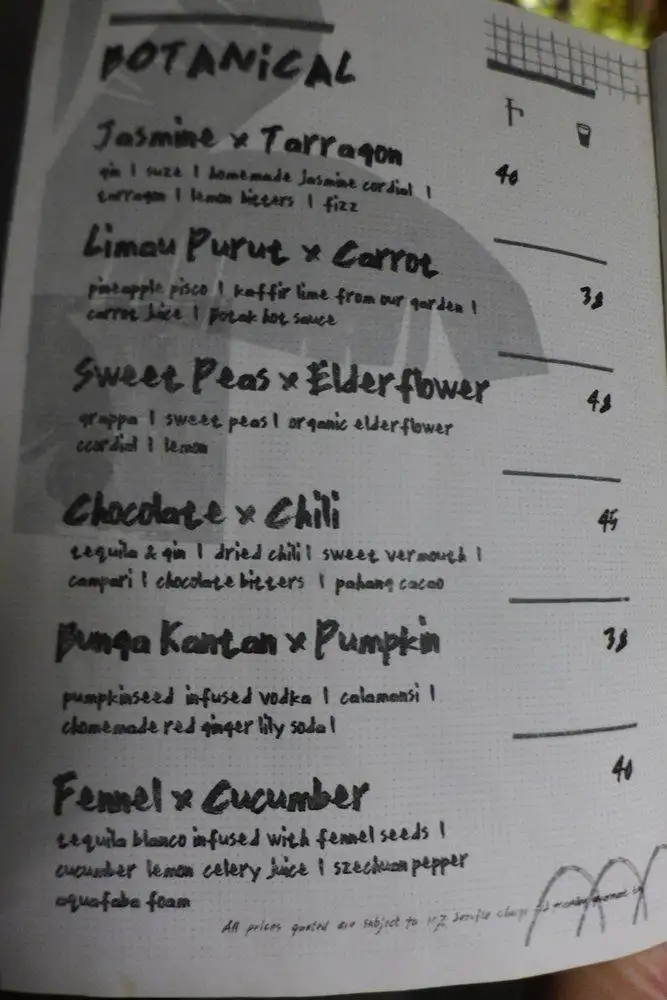 BOTANiCAL
Jasmine x Tarragon
gin | suze | homemade jasmine cordial |
tarragon | lemon bitters | fizz
40
Limau Purut x Carrot
pineapple pisco | kaffir lime from our garden |
carrot juice | Potak hot sauce
38
Sweet Peas x Elderflower
grappa | sweet peas | organic elderflower
cordial | lemon
48
Chocolate x Chili
tequila & gin | dried chili | sweet vermouth |
campari | chocolate bitters | pahang cacao
45
Bunga Kantan x Pumpkin
pumpkinseed infused vodka | calamansi |
homemade red ginger lily soda |
38
Fennel x Cucumber
tequila blanco infused with fennel seeds |
cucumber lemon celery juice | szechuan pepper
aquafaba foam
40
All prices quoted are subject to 10% service charge